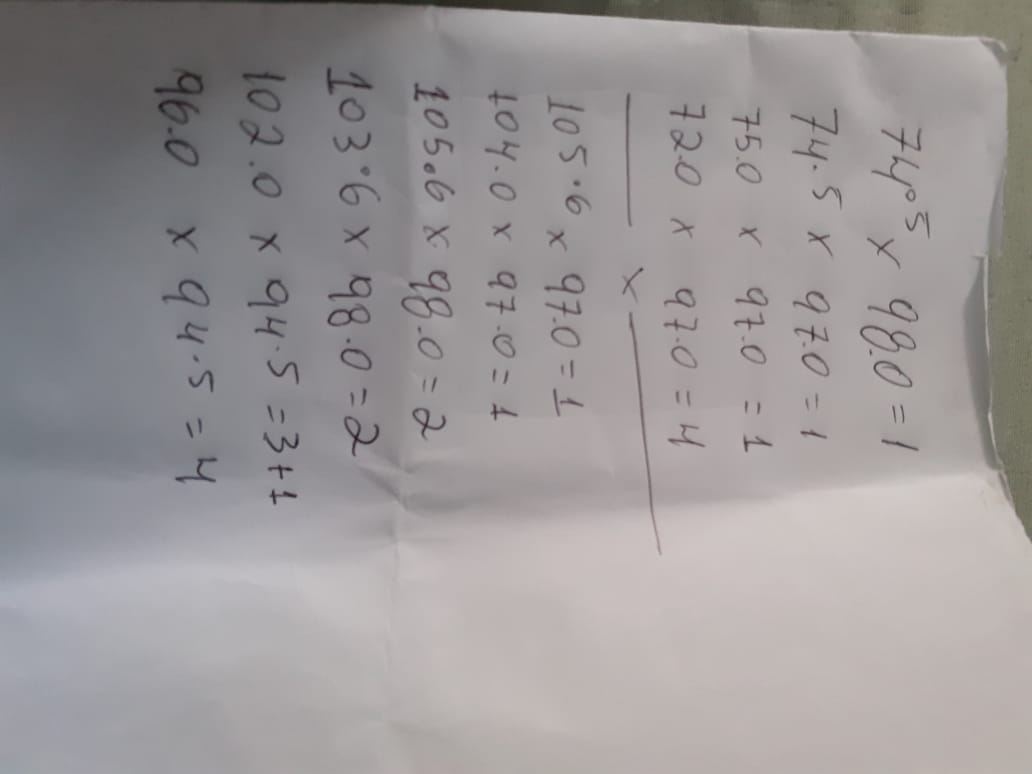 74.5 x 98.0 = 1
74.5 x 97.0 = 1
75.0 x 97.0 = 1
72.0 x 97.0 = 4
—— x ——
105.6 x 97.0 = 1
104.0 x 97.0 = 1
105.6 x 98.0 = 2
103.6 x 98.0 = 2
102.0 x 94.5 = 3+1
96.0 x 94.5 = 4